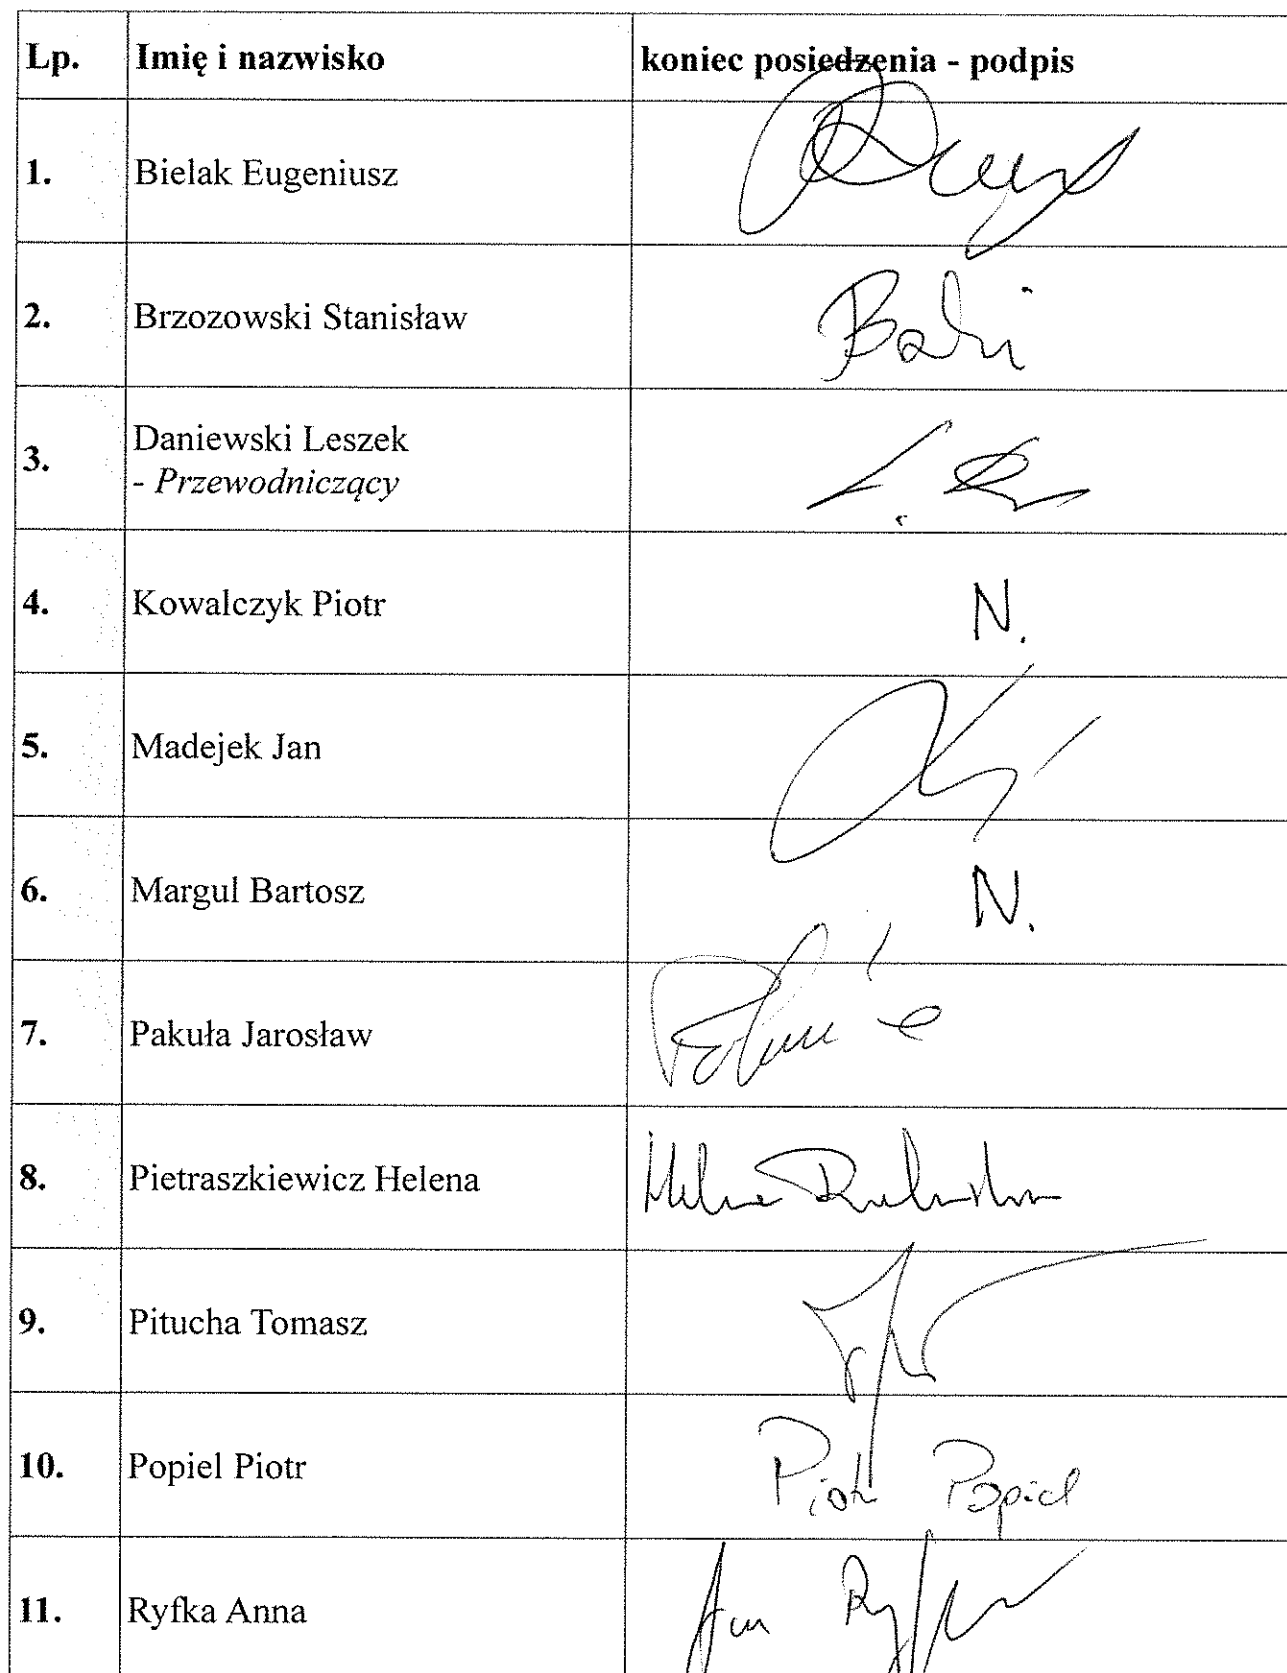 Lp. Imię i nazwisko koniec posiedzenia - podpis
1. Bielak Eugeniusz
2. Brzozowski Stanisław
3. Daniewski Leszek
- Przewodniczący
4. Kowalczyk Piotr N.
5. Madejek Jan
6. Margul Bartosz N.
7. Pakuła Jarosław
8. Pietraszkiewicz Helena
9. Pitucha Tomasz
10. Popiel Piotr Piotr Popiel
11. Ryfka Anna